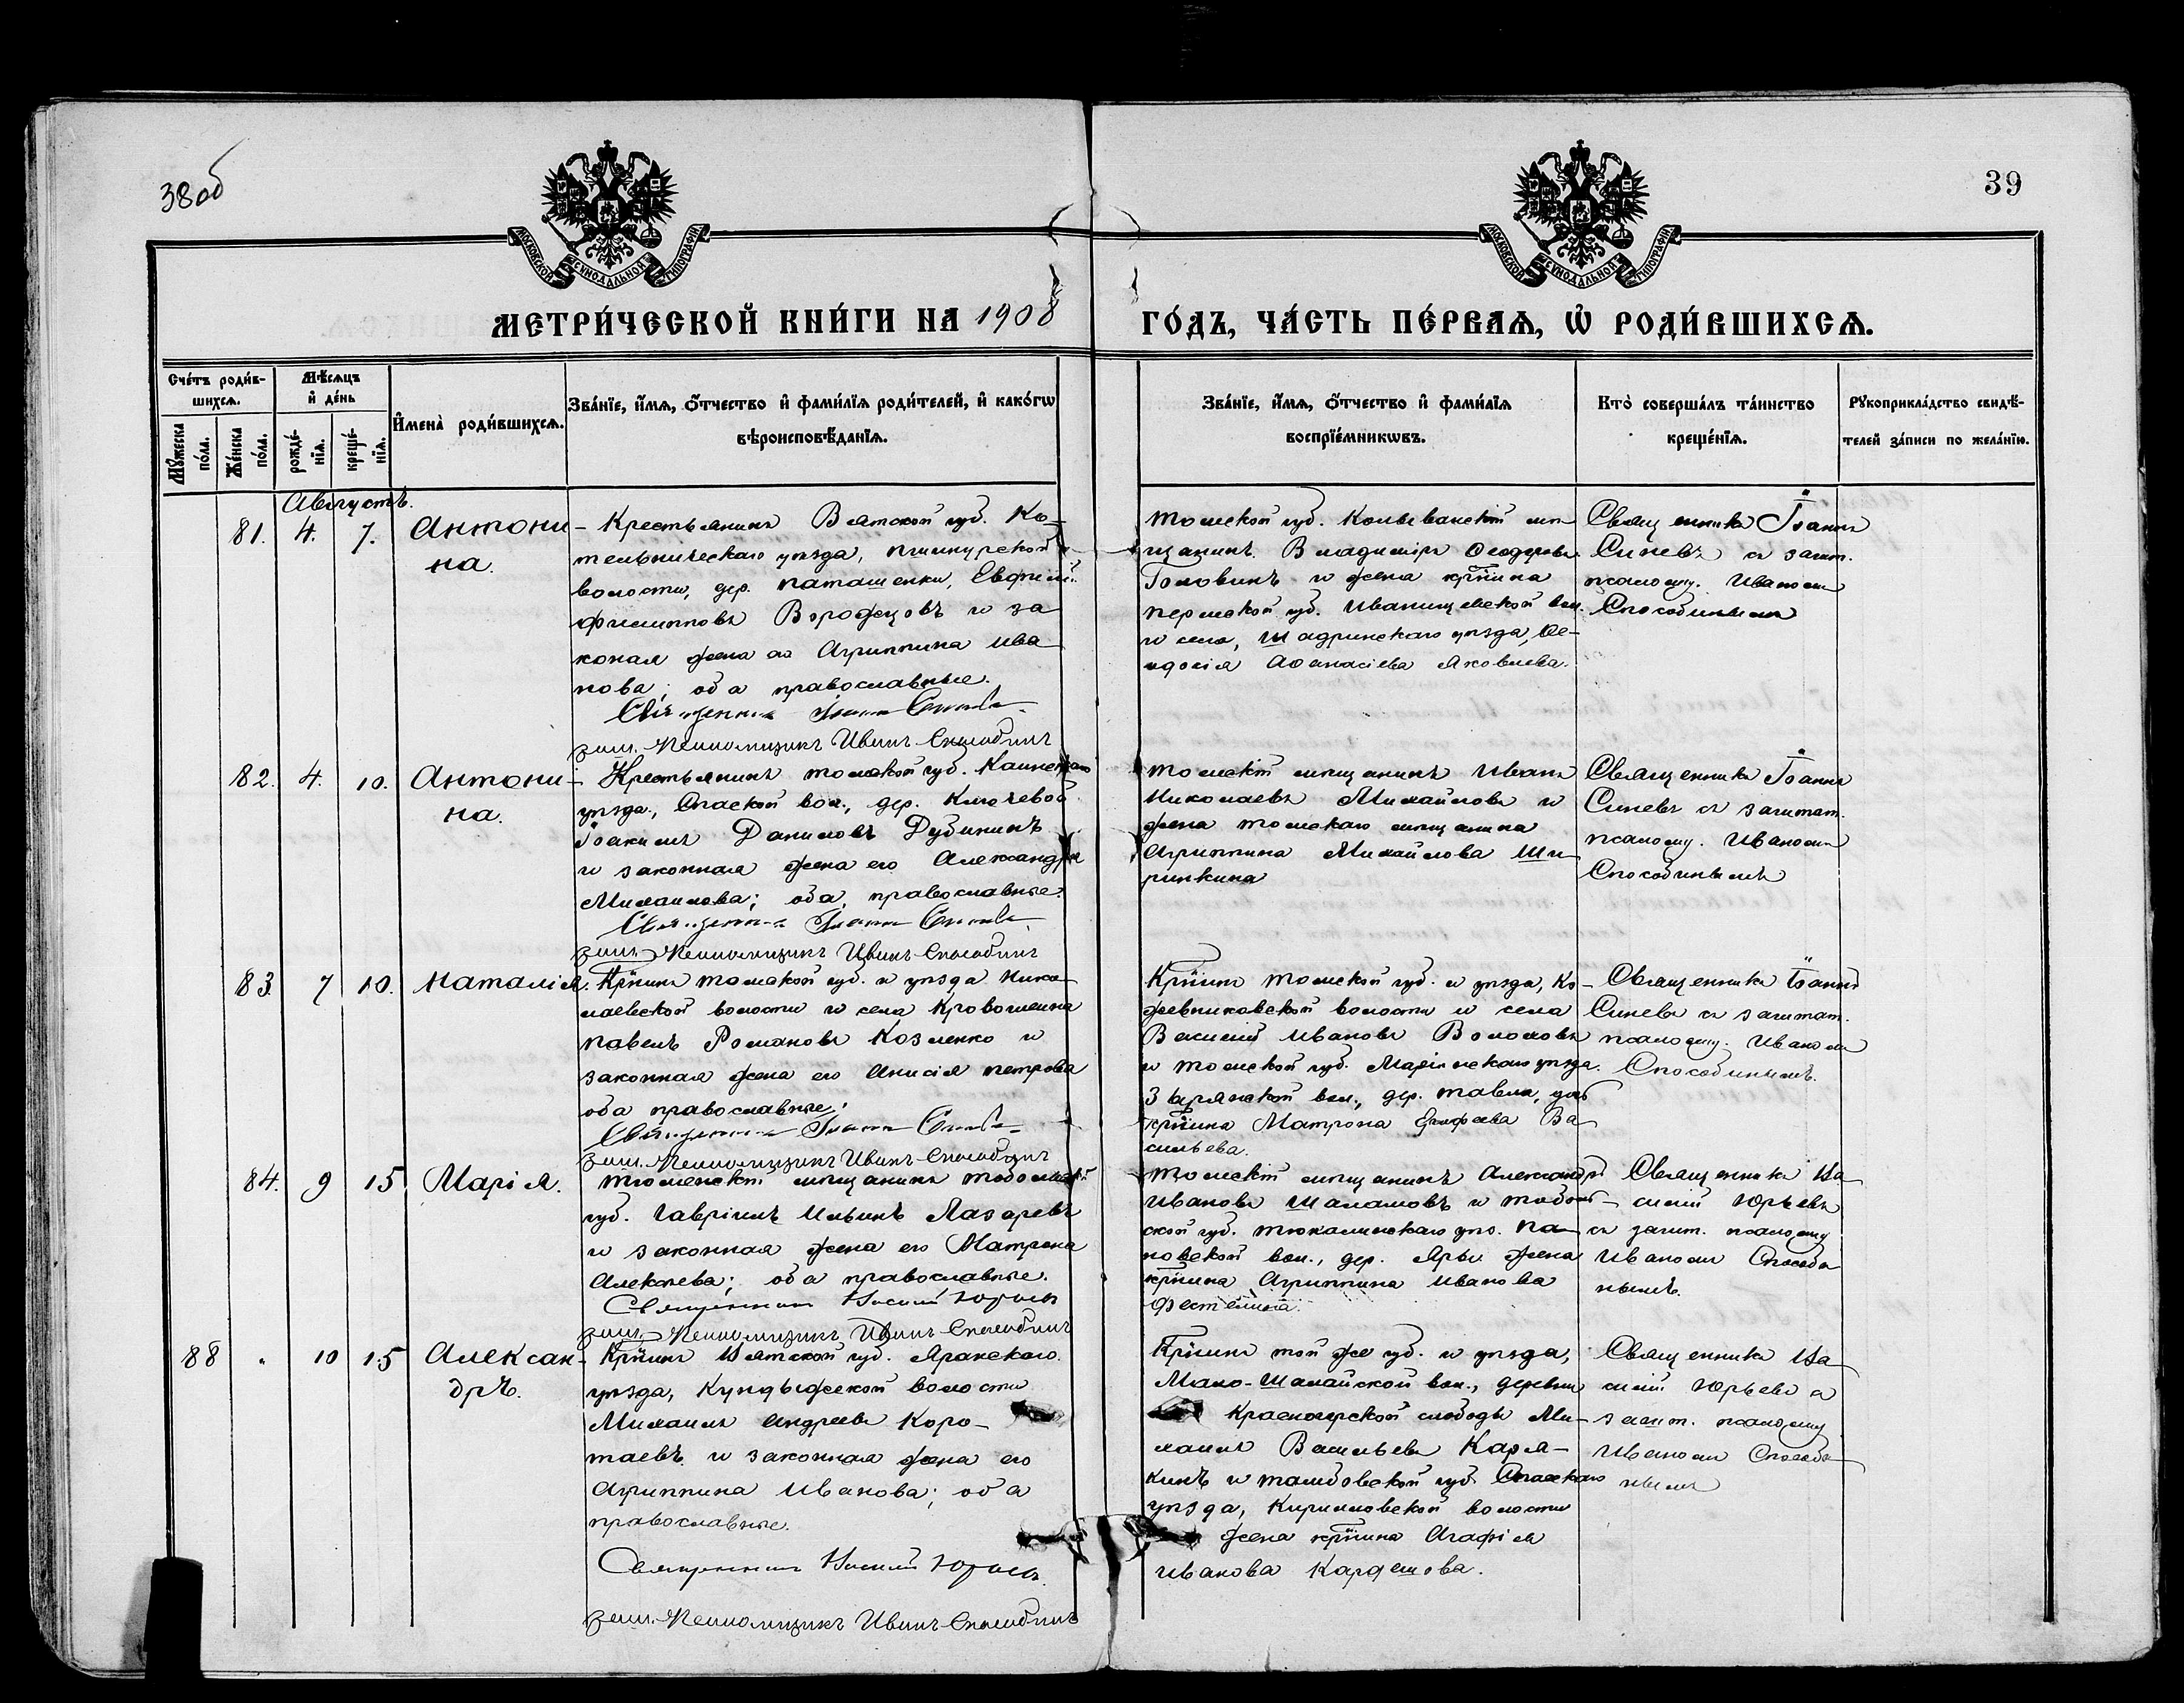 38об
39
МОСКОВСКОЙ СѴНОДАЛЬНОЙ ТИПОГРАФІИ
МОСКОВСКОЙ СѴНОДАЛЬНОЙ ТИПОГРАФІИ
МЕТРИ́ЧЕСКОЙ КНИ́ГИ НА 1908
ГО́ДЪ, ЧА́СТЬ ПЕ́РВАѦ, Ѽ РОДИ́ВШИХСѦ.
Сче́тъ роди́в-
шихсѧ.
Мꙋ́жеска по́ла.
Же́нска по́ла.
Мѣ́сѧцъ
и҆ де́нь
рожде́-нїѧ.
креще́-нїѧ.
И҆мена̀ роди́вшихсѧ.
Зва́нїе, и҆́мѧ, ѻ҆́тчество и҆ фами́лїѧ роди́телей, и҆ како́гѡ
вѣроисповѣ́данїѧ.
Зва́нїе, и҆́мѧ, ѻ҆́тчество и҆ фами́лїѧ
воспрїе́мникѡвъ.
Кто̀ соверша́лъ та́инство
креще́нїѧ.
Рꙋкоприкла́дство свидѣ́-
телей за́писи по жела́нїю.
Августъ.
81. 4. 7. Антони-
на.
Крестьянинъ Вятской губ. Ко-
тельническаго уѣзда,
волости, дер. Паташенки, Евфимій
Филипповъ Ворожцовъ и за
конная жена его Агриппина Ива
нова; оба православные.
Священникъ Іоаннъ Синевъ
заш. Псаломщикъ Иванъ Способинъ
Томской губ. Колыванскій мѣ-
щанинъ Владиміръ Ѳеодоровъ
Головинъ и жена кр҃нина
Пермской губ. Иванищевской вол.
и села, Шадринскаго уѣзда, Ѳе-
одосія Аѳанасіева Яковлева.
Священникъ Іоаннъ
Синевъ съ зашт.
псаломщ. Иваномъ
Способинымъ
82. 4. 10. Антони-
на.
Крестьянинъ Томской губ. Каинскаго
уѣзда, Спаской вол., дер. Ключевой
Іоакимъ Даниловъ Дубининъ
и законная жена его Александра
Михаилова; оба православные.
Священникъ Іоаннъ Синевъ
заш. Псаломщикъ Иванъ Способинъ
Томскій мѣщанинъ Иванъ
Николаевъ Михайловъ и
жена Томскаго мѣщанина
Агриппина Михайлова Ши-
ринкина
Священникъ Іоаннъ
Синевъ съ заштат.
псаломщ. Иваномъ
Способинымъ
83. 7 10. Наталія.
Кр҃нинъ Томской губ. и уѣзда Нико-
лаевской волости и села Кривошеина
Павелъ Романовъ Козленко и
законная жена его Анисія Петрова
оба православные.
Священникъ Іоаннъ Синевъ
заш. Псаломщикъ Иванъ Способинъ
Кр҃нинъ Томской губ. и уѣзда, Ко-
жевниковской волости и села
Василій Ивановъ Волоховъ
и Томской губ. Маріинскаго уѣзда
Зырянской вол., дер. Тавлы,
кр҃нина Матрона Ва-
сильева.
Священникъ Іоаннъ
Синевъ съ заштат.
псаломщ. Иваномъ
Способинымъ.
84. 9 15 Марія.
Тюменскій мѣщанинъ Тобольской
губ. Гавріилъ Ильинъ Лазаревъ
и законная жена его Матрона
Алексѣева; оба православные.
Священникъ Василій Юрьевъ
заш. Псаломщикъ Иванъ Способинъ
Томскій мѣщанинъ Александръ
Ивановъ Шаламовъ и Тоболь-
ской губ. Тюкалинскаго уѣз. Па-
новской вол., дер. Яры жена
кр҃нина Агриппина Иванова
Священникъ Ва-
силій Юрьевъ
съ зашт. псаломщ.
Иваномъ Способи-
нымъ.
88 " 10 15 Алексан-
дръ.
Кр҃нинъ Вятской губ. Яранскаго
уѣзда, Кундыжской волости
Михаилъ Андреевъ Коро-
таевъ и законная жена его
Агриппина Иванова; оба
православные.
Священникъ Василій Юрьевъ
заш. Псаломщикъ Иванъ Способинъ
Кр҃нинъ той же губ. и уѣзда,
Мало-Шалайской вол., деревни
Красногорской слободы Ми-
хаилъ Васильевъ Каря-
кинъ и Тамбовской губ. Спаскаго
уѣзда, Кирилловской волости
жена кр҃нина Агафія
Иванова Кардешова.
Священникъ Ва-
силій Юрьевъ съ
зашт. псаломщ.
Иваномъ Способи-
нымъ